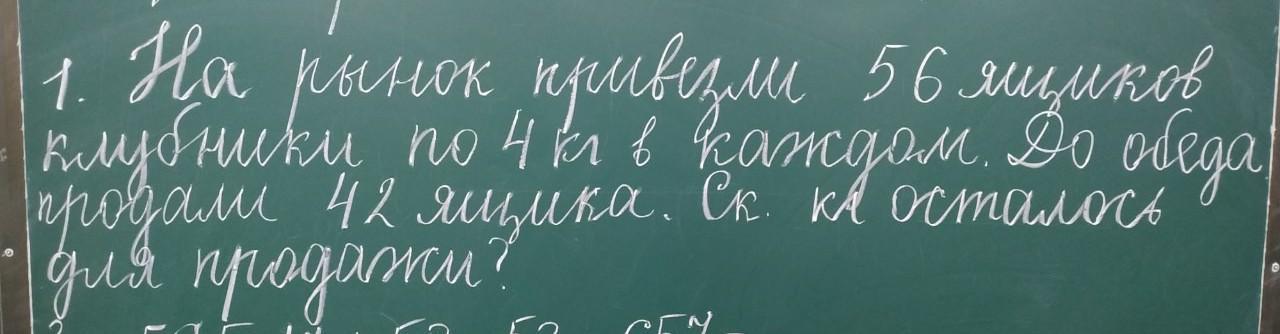 1. На рынок привезли 56 ящиков
клубники по 4 кг в каждом. До обеда
продали 42 ящика. Ск. кг осталось
для продажи?